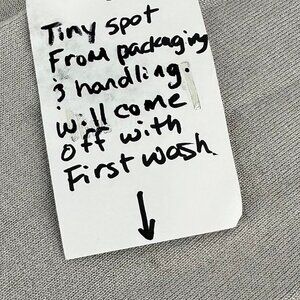 Tiny spot
From packaging
& handling.
will come
off with
First wash.